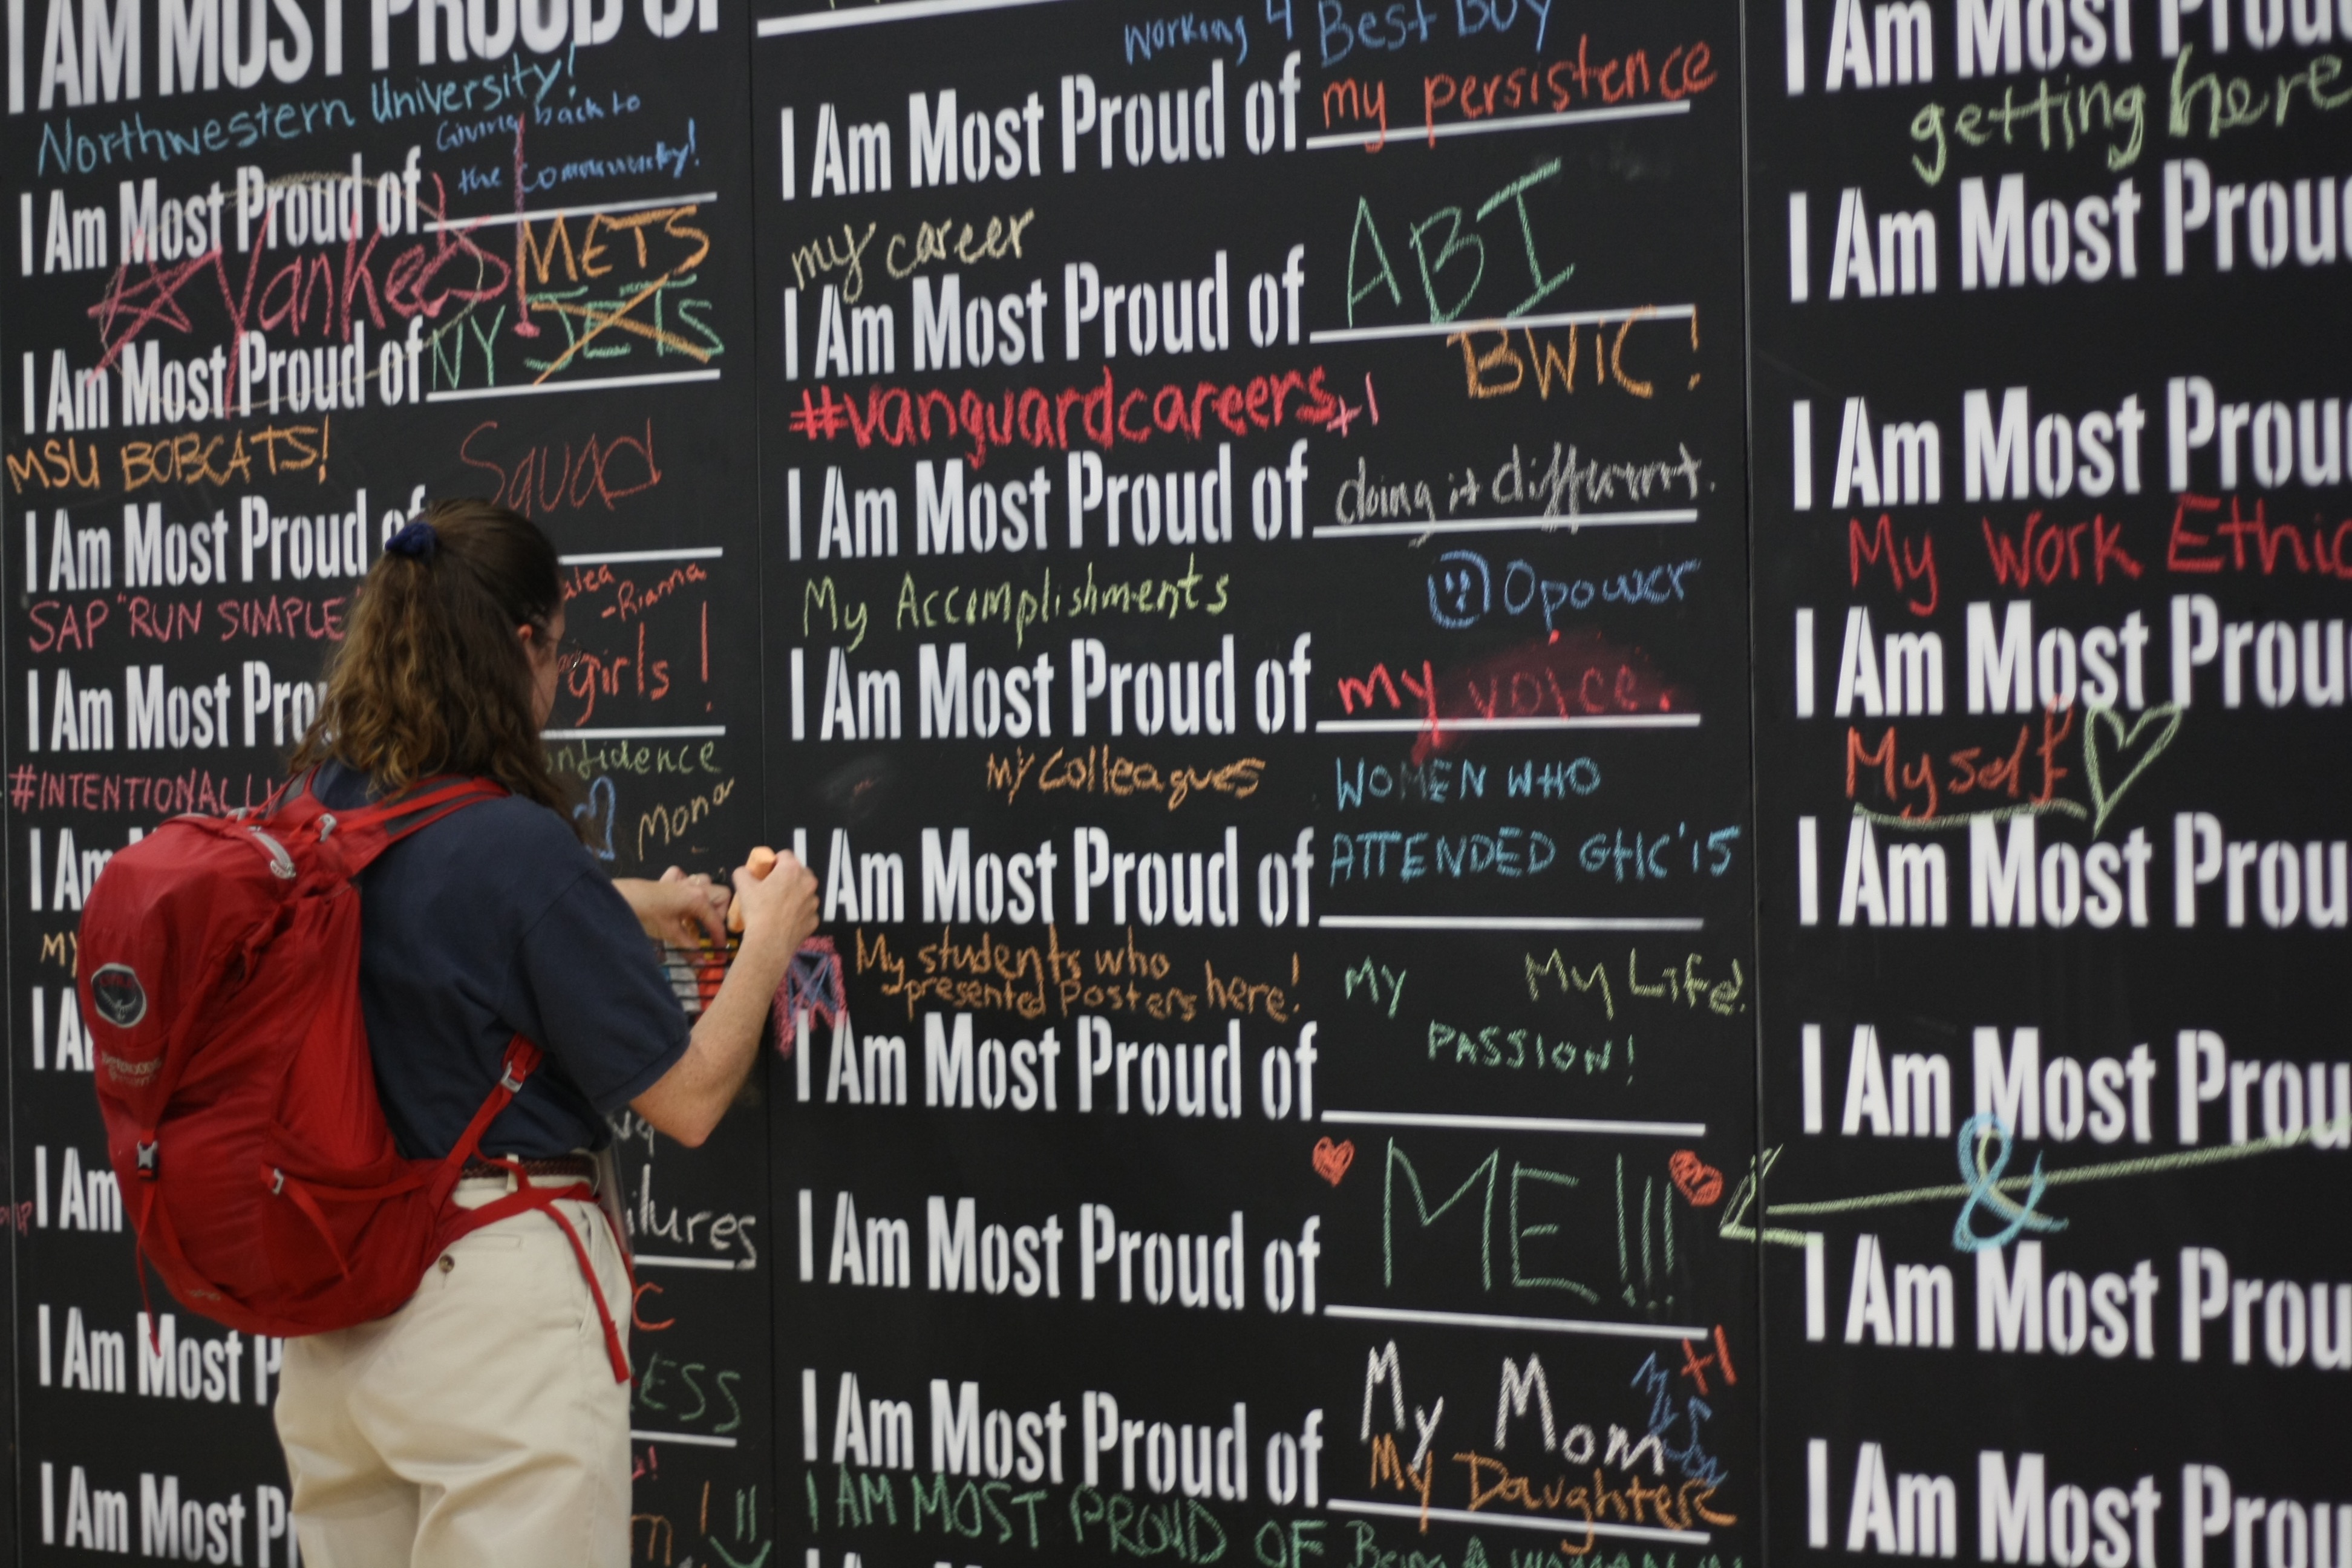 I AM MOST PROUD OF
Northwestern University!
Giving back to
the community!
I Am Most Proud of
Yankees
METS
I Am Most Proud of NY JETS
MSU BOBCATS!
Squad
I Am Most Proud of
SAP "RUN SIMPLE
-Rianna
girls!
I Am Most
#INTENTIONALLY
Mona
I Am
MY
I Am
I Am
I Am Most
I Am Most
Working 4 Best Buy
I Am Most Proud of my persistence
my career
I Am Most Proud of ABI
BWiC!
#vanguardcareers +1
I Am Most Proud of doing it different.
My Accomplishments
Opower
I Am Most Proud of my voice.
My Colleagues
WOMEN WHO
I Am Most Proud of ATTENDED GHC'15
My students who
-presented posters here!
MY
My Life!
PASSION!
I Am Most Proud of
I Am Most Proud of ME!!!
+1
My Son
I Am Most Proud of My Mom
My Daughter
I AM MOST PROUD OF Being A WOMAN IN
I Am Most
getting here
I Am Most
I Am Most
My Work Ethic
I Am Most
Myself
I Am Most
I Am Most
&
I Am Most
I Am Most